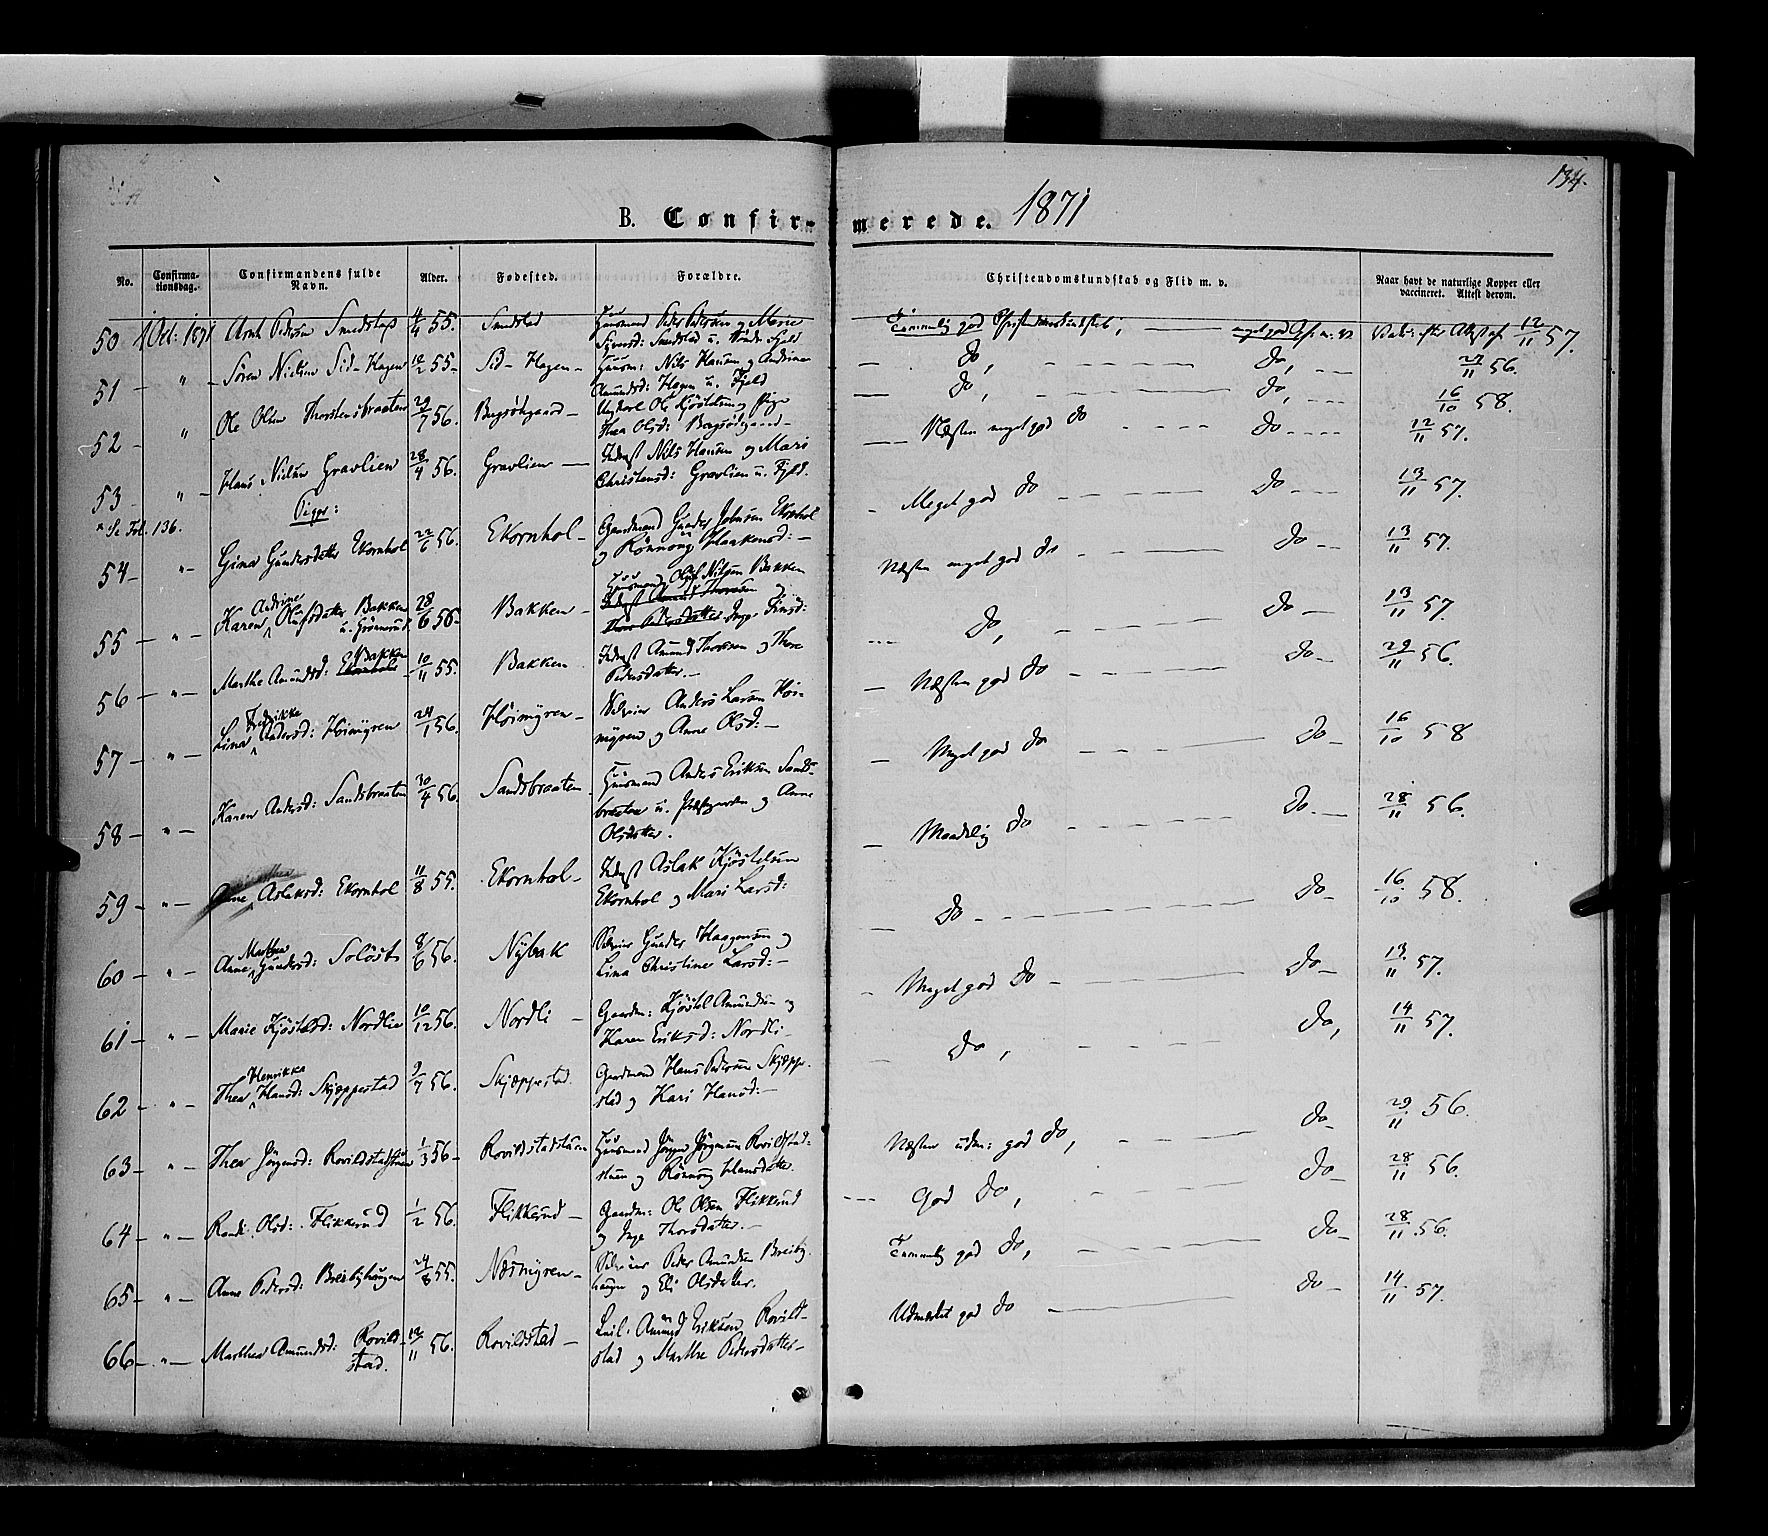 134.
B. Confirmerede. 1871
No. Confirmationsdag. Confirmandens fulde Navn. Alder. Fødested. Forældre. Christendomskundskab og Flid m. v. Naar havt de naturlige Kopper eller vaccineret. Attest derom.
50 1 Oct: 1871 Arnt Pedersen Smedstad 4/4 55. Smedstad Huusmand Peder Pedersen og Marie
Syversd: Smedstad u. Fjeld
Temmelig god Christendomskundskab, meget god 12/11 57.
51 - " - Søren Nielsen Sid-Hagen 12/2 55- Sid-Hagen- Huusm: Nils Hansen og Andrine
Amundsd: Hagen u. Fjeld
do, do, 27/11 56.
52 " Ole Olsen Thorstensbraaten 29/7 56. Ungkarl Ole Kjöstelsen og Pige
Thea Olsd:
do, do, 16/10 58.
53 " Hans Nielsen Gravlien 28/4 56. Gravlien Inderst Nils Hansen og Mari
Christensd: Gravlien u. Fjeld.
Næsten meget god do do 12/11 57.
Se Fol. 136.
Piger:
54- "- Gina Gundersdatter Ekornhol 22/6 56. Ekornhol- Gaardmand Gunder Johnsen Ekornhol
og Rönnoug Haakensd:-
Meget god do do 13/11 57.
55 - " - Karen Andrine Olufsdatter Bakken 28/6 56- Bakken- Huusmand Oluf Nilsen Bakken
Inderst Amund Thoresen og
Thore Pedersdatter Inge
Næsten meget god do do 13/11 57.
56 - " - Marthe Amundsd: Ekornhol Bakken 10/11 55. Bakken Inderst Amund Thoresen og Thore
Pedersdatter.-
do, do 13/11 57.
57 - " - Lina Fredrikke Andersd: Höimyren 24/1 56. Höimyren- Selveier Anders Larsen Höi-
myren og Anne Olsd:-
Næsten god do do- 29/11 56.
58 - " - Karen Andersd: Sandsbraaten 30/4 56. Sandsbraaten. Huusmand Anders Eriksen Sands-
braaten u. Præstegaarden og Anne
Olsdatter.
Meget god do do- 16/10 58
59 - " - Anne Aslaksd: Ekornhol 11/8 55. Ekornhol- Inderst Aslak Kjöstelsen
Ekornhol og Mari Larsd:
Maadelig do do.- 28/11 56.
60 - " - Anne Marthea Gundersd: Solöst 8/6 56. Nybak Selveier Gunder Haagensen og
Lina Christine Larsd:-
do- do- 16/10 58.
61 - " - Marie Kjöstelsd: Nordlie 10/12 56. Nordli - Gaardm: Kjöstel Amundsen og
Karen Eriksd: Nordli-
Meget god do do- 13/11 57.
62 - " - Thea Henrikka Hansd: Skjeppestad 9/7 56. Skjæppestad. Gaardmand Hans Pedersen Skjæppe-
stad og Kari Hansd:-
do, do, 14/11 57.
63 - " - Thea Jörgensd: Rovildstadstuen 1/3 56- Rovildstadstuen Huusmand Jörgen Jörgensen Rovildstad-
stuen og Rönnoug Hansdatter.
Næsten udm: god do, do- 29/11 56.
64 - " - Randi Olsd: Flikkerud 1/2 56. Flikkerud - Gaardm: Ole Olsen Flikkerud
og Inge Thorsdatter.-
God do, do- 28/11 56.
65 - " - Anne Pedersd: Breibyhaugen 24/8 55. Næsmyren- Selveier Peder Amundsen Breiby-
haugen og Eli Olsdatter.
Temmelig god do, do- 28/11 56.
66 - " - Marthea Amundsd: Rovild-
stad. 12/11 56. Rovildstad- Leil. Amund Eriksen Rovild-
stad og Marthe Pedersdatter-
Udmærket god do do- 14/11 57.